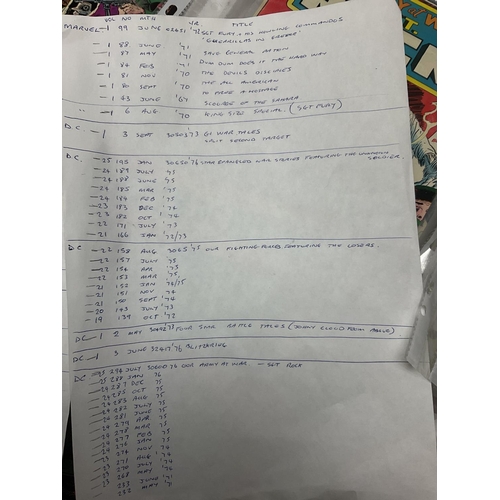 VOL NO MTH YR. TITLE
MARVEL-1 99 JUNE 02451 '72 SGT FURY & HIS HOWLING COMMANDOS
"GUERRILLAS IN GREECE"
-1 88 JUNE '71
-1 87 MAY '71 SAVE GENERAL PATTON
-1 84 FEB '71 DUM DUM DOES IT THE HARD WAY
-1 81 NOV '70 THE DEVILS DISCIPLES
-1 80 SEPT '70 THE ALL AMERICAN
TO FREE A HOSTAGE
-1 43 JUNE '67 SCOURGE OF THE SAHARA
" -1 6 AUG '70 KING SIZE SPECIAL (SGT FURY)
D.C. -1 3 SEPT '73 G.I. WAR TALES
SPLIT SECOND TARGET
D.C. -25 195 JAN 30650 '76 STAR SPANGLED WAR STORIES FEATURING THE UNKNOWN SOLDIER.
-24 189 JULY '75
-24 188 JUNE '75
-24 185 MAR '75
-24 184 FEB '75
-23 183 DEC '74
-23 182 OCT '74
-22 171 JULY '73
-21 166 JAN '72/73
D.C. -22 158 AUG '75 OUR FIGHTING FORCES FEATURING THE LOSERS.
-22 157 JULY '75
-22 154 APR '75
-22 153 MAR '75
-21 152 JAN '74/75
-21 151 NOV '74
-21 150 SEPT '74
-20 143 JULY '73
-19 139 OCT '72
DC -1 2 MAY '73 FOUR STAR BATTLE TALES (JOHNY CLOUD FROM ABOVE)
DC -1 3 JUNE '76 BLITZKRIEG
DC -25 294 JULY 76 OUR ARMY AT WAR - SGT ROCK
-25 288 JAN 76
-24 287 DEC 75
-24 285 OCT 75
-24 283 AUG 75
-24 282 JULY 75
-24 281 JUNE 75
-24 279 APR 75
-24 278 MAR 75
-24 277 FEB 75
-24 276 JAN 75
-23 274 NOV 74
-23 271 AUG '74
-23 270 JULY '74
-23 268 MAY '74
233 JUNE '71
232 MAY '71